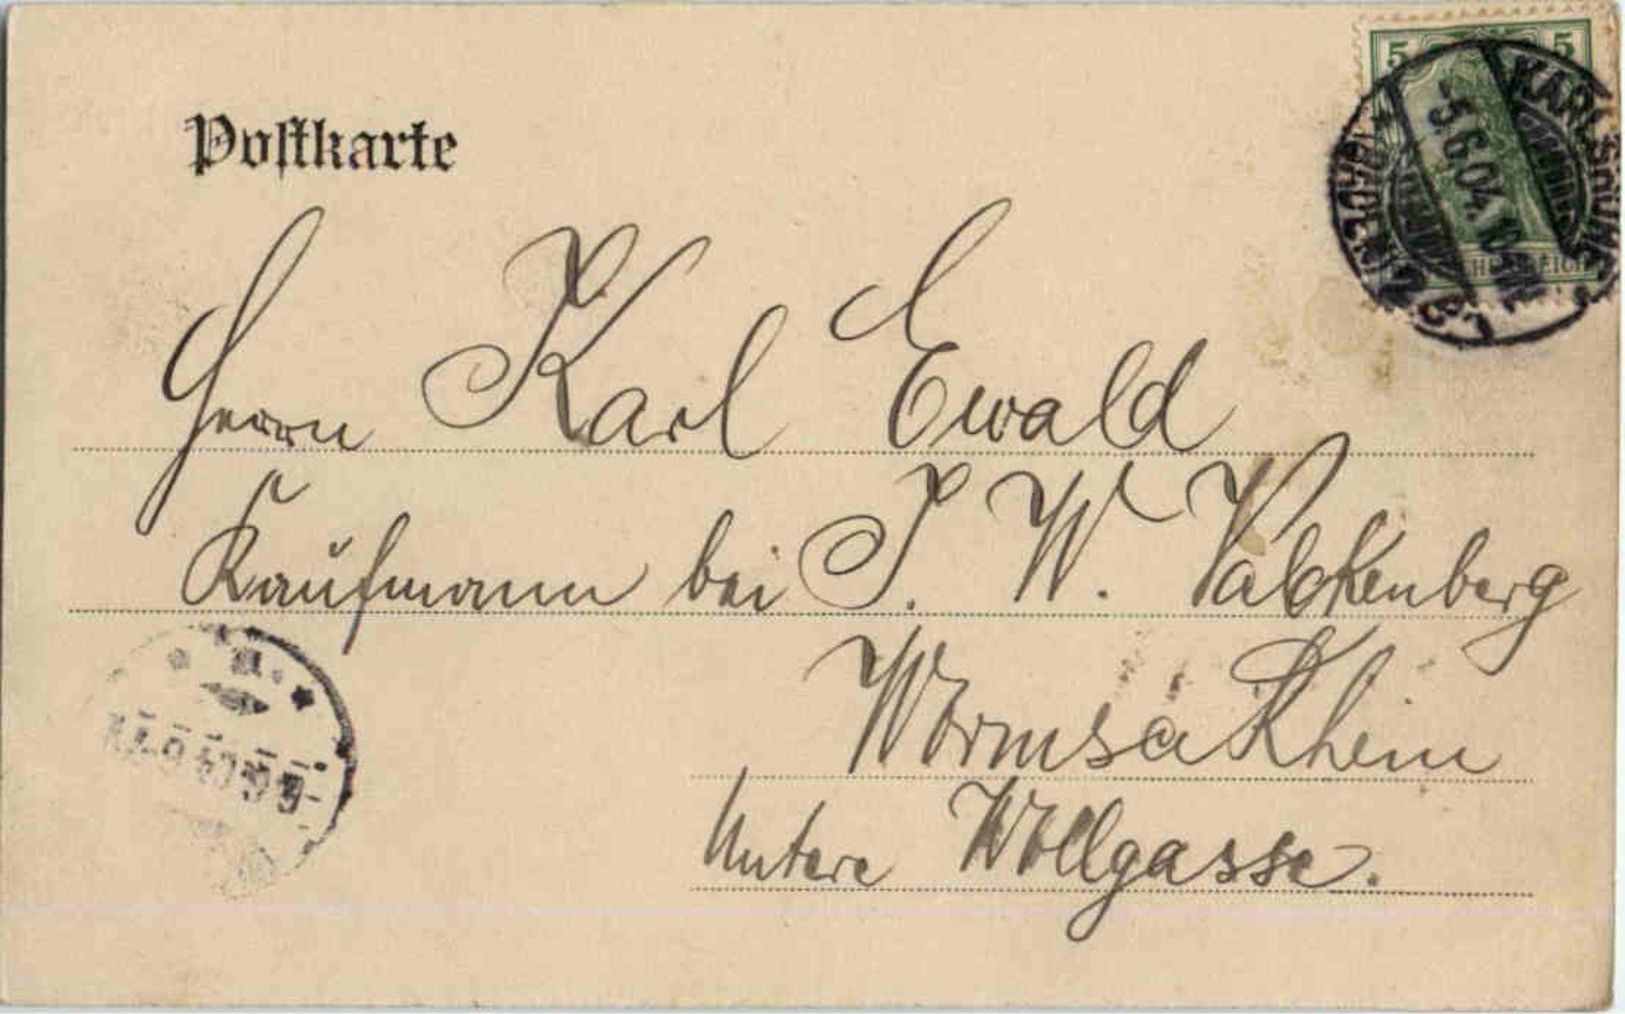 Postkarte
5 5
KARLSRUHE
(BADEN)
-5.6.04. 10
Herrn Karl Ewald
Kaufmann bei J. W. Valckenberg
Worms a Rhein
Untere Wollgasse.